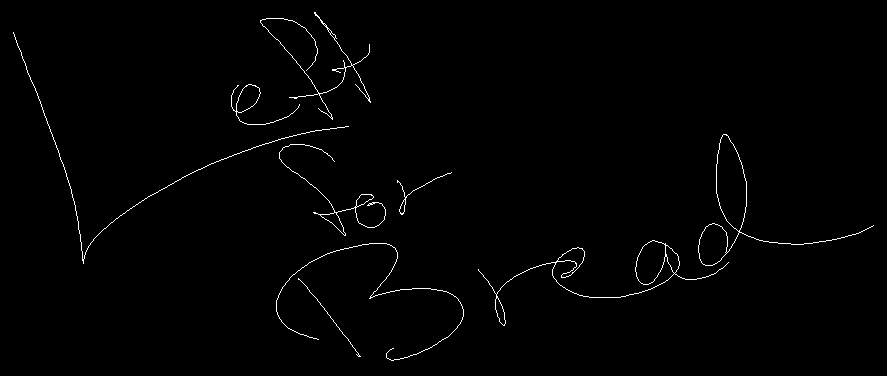 Left
for
Bread